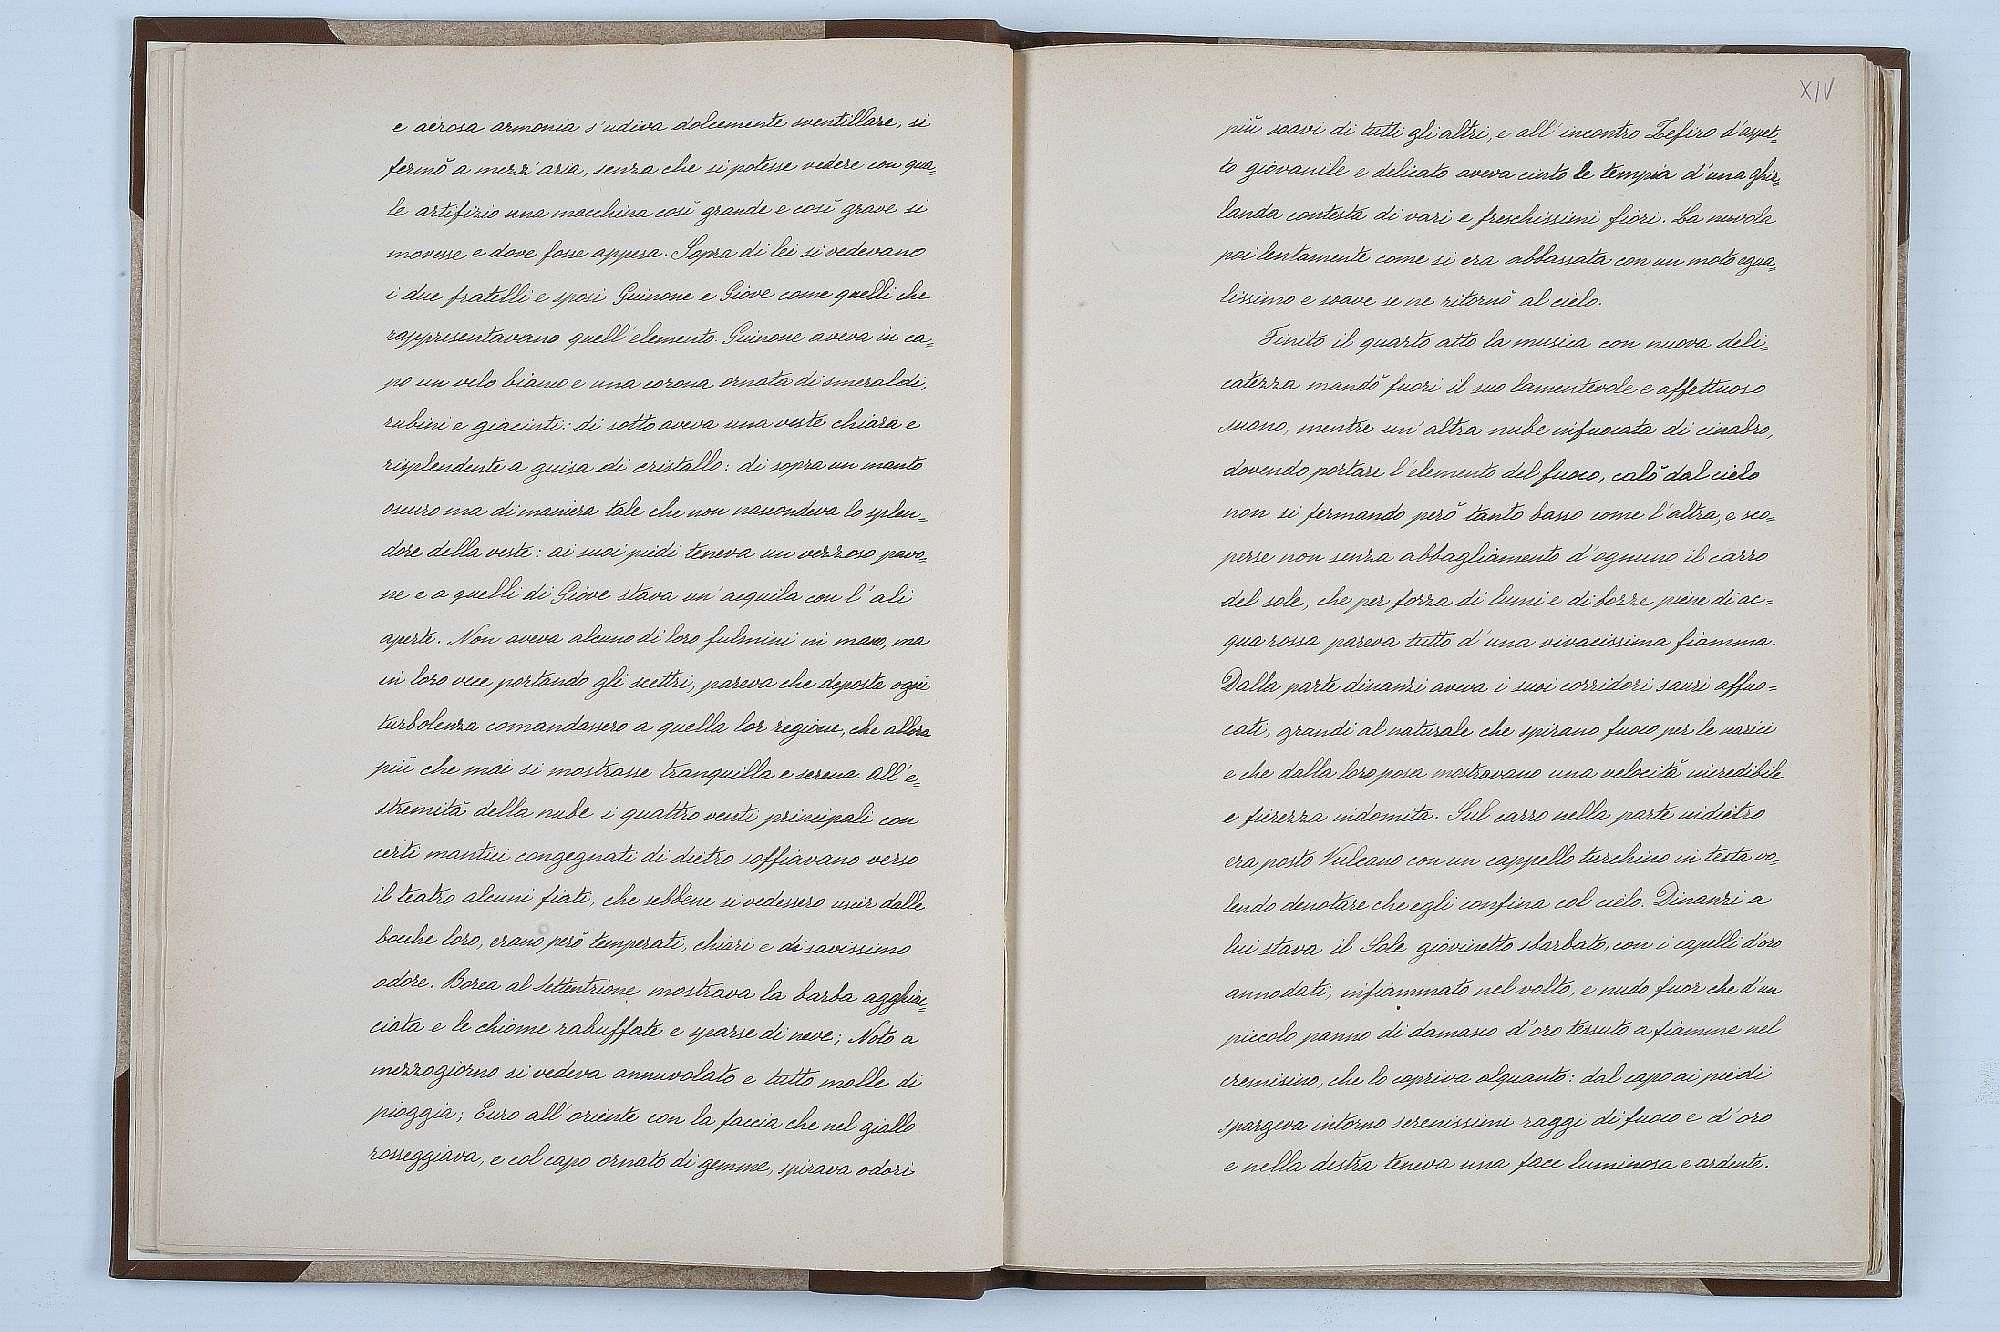 e aërosa armonia s'udiva dolcemente sventillare, si
fermò a mezz'aria, senza che si potesse vedere con qua=
le artifizio una macchina così grande e così grave si
movesse e dove fosse appesa. Sopra di lei si vedevano
i due fratelli e sposi Guinone e Giove come quelli che
rappresentavano quell'elemento. Guinone aveva in ca=
po un velo bianco e una corona ornata di smeraldi,
rubini e giacinti: di sotto aveva una veste chiara e
risplendente a guisa di cristallo: di sopra un manto
oscuro ma di maniera tale che non nascondeva lo splen=
dore della veste: ai suoi piedi teneva un vezzoso pavo=
ne e a quelli di Giove stava un'acquila con l'ali
aperte. Non aveva alcuno di loro fulmini in mano, ma
in loro vece portando gli scettri, pareva che deposta ogni
turbolenza comandassero a quella lor regione, che allora
più che mai si mostrasse tranquilla e serena. All'e=
stremità della nube i quattro venti principali con
certi mantici congegnati di dietro soffiavano verso
il teatro alcuni fiati, che sebbene si vedessero uscir dalle
bocche loro, erano però temperati, chiari e di savissimo
odore. Borea al Settentrione mostrava la barba agghiac=
ciata e le chiome rabuffate e sparse di neve; Noto a
mezzogiorno si vedeva annuvolato e tutto molle di
pioggia; Euro all'oriente con la faccia che nel giallo
rosseggiava, e col capo ornato di gemme, spirava odori
XIV
più soavi di tutti gli altri, e all'incontro Zefiro d'aspet=
to giovanile e delicato aveva cinto le tempia d'una ghir=
landa contesta di vari e freschissimi fiori. La nuvola
poi lentamente come si era abbassata con un moto egua=
lissimo e soave se ne ritornò al cielo.
Finito il quarto atto la musica con nuova deli=
catezza mandò fuori il suo lamentevole e affettuoso
suono, mentre un'altra nube infuocata di cinabro,
dovendo portare l'elemento del fuoco, calò dal cielo
non si fermando però tanto basso come l'altra, e sco=
perse non senza abbagliamento d'ognuno il carro
del sole, che per forza di lumi e di bozze piene di ac=
qua rossa pareva tutto d'una vivacissima fiamma.
Dalla parte dinanzi aveva i suoi corridori sauri affuo=
cati, grandi al naturale che spirano fuoco per le narici
e che dalla loro posa mostravano una velocità incredibile
e fierezza indomita. Sul carro nella parte indietro
era posto Vulcano con un cappello turchino in testa vo=
lendo denotare che egli confina col cielo. Dinanzi a
lui stava il Sole giovinetto sbarbato, con i capelli d'oro
annodati, infiammato nel volto, e nudo fuor che d'un
piccolo panno di damasco d'oro tessuto a fiamme nel
cremisino, che lo copriva alquanto: dal capo ai piedi
spargeva intorno serenissimi raggi di fuoco e d'oro
e nella destra teneva una face luminosa e ardente.